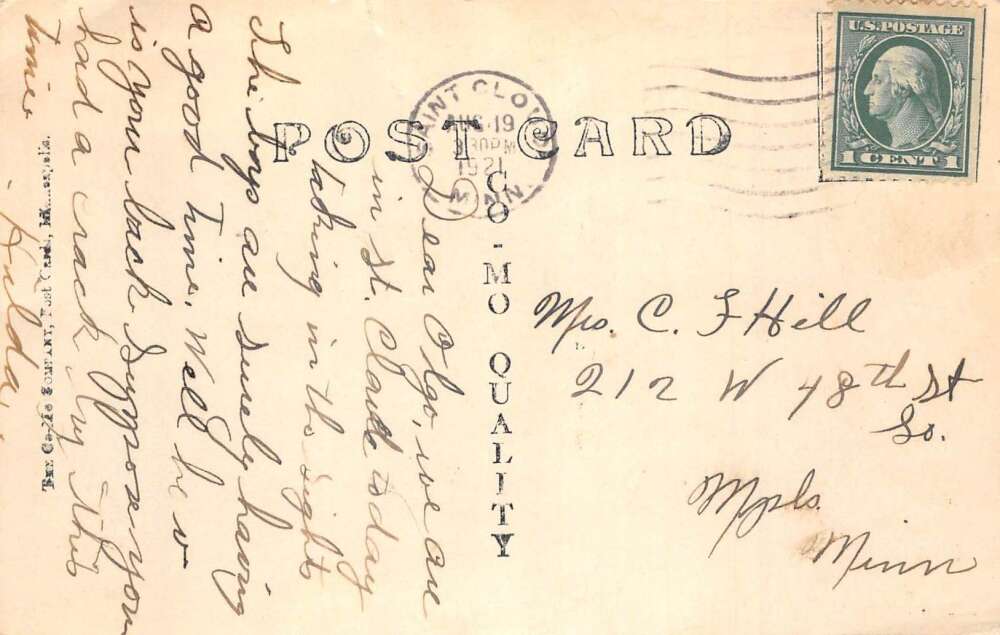 U.S. POSTAGE
1 CENT 1
SAINT CLOUD
AUG 19
330PM
1921
MINN.
POST CARD
CO-MO QUALITY
Dear Olga, we are
in St. Claude today
taking in the sights
The boys are surely having
a good time. Well how
is your back Suppose you
had a crack by this
time
Hulda.
Mrs. C. F Hill
212 W 48th St
So.
Mpls.
Minn
COMPANY, Post Cards,